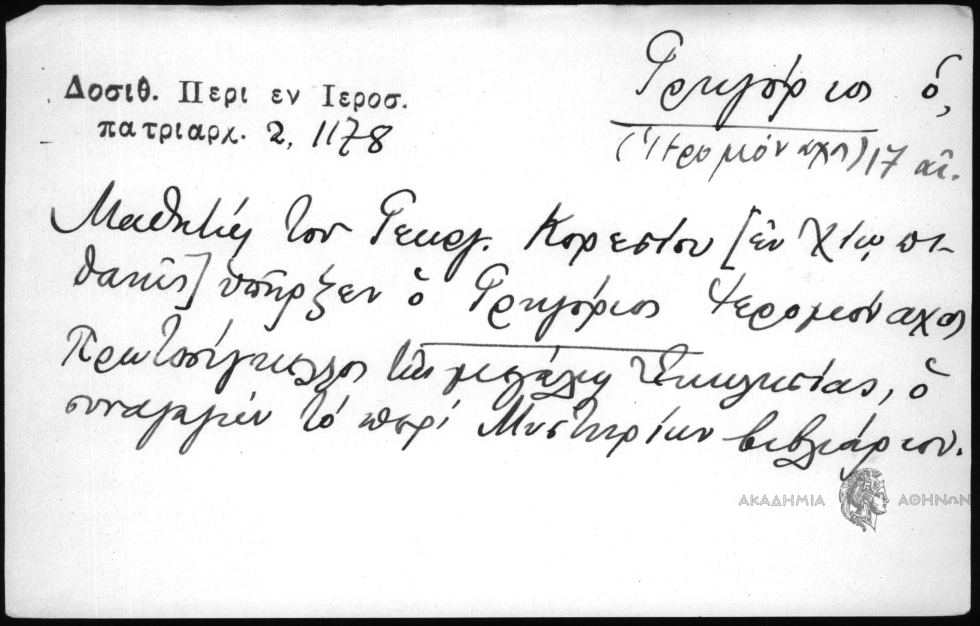 Δοσιθ. Περι εν Ιεροσ.
πατριαρχ. 2, 1178
Γρηγόριος ὁ,
(Ἱερομόναχος) 17 αἰ.
Μαθητής τοῦ Γεωργ. Κορεσίου [ἐν Χίῳ, πι-
θανῶς] ὑπῆρξεν ὁ Γρηγόριος Ἱερομόναχος
Πρωτοσύγκελλος τῆς μεγάλης Ἐκκλησίας, ὁ
συναγαγών τό περί Μυστηρίων βιβλιάριον.
ΑΚΑΔΗΜΙΑ ΑΘΗΝΩΝ